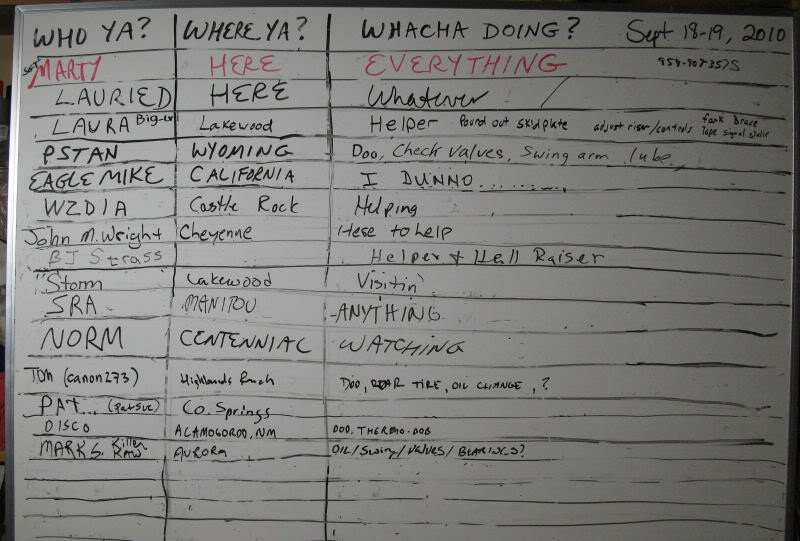 WHO YA? WHERE YA? WHACHA DOING? Sept 18-19, 2010
MARTY HERE EVERYTHING
LAURIED HERE Whatever
LAURA Big-Lr Lakewood Helper Pound out skidplate adjust riser/controls fork Brace
Tape signal stalk
PSTAN WYOMING Doo, Check Valves, Swing arm lube
EAGLE MIKE CALIFORNIA I DUNNO..........
WZDIA Castle Rock Helping
John M. Wright Cheyenne Here to help
BJ Strass Helper & Hell Raiser
Storm Lakewood Visitin'
SRA MANITOU -ANYTHING
NORM CENTENNIAL WATCHING
Tom (canon273) Highlands Ranch Doo, REAR TIRE, OIL CHANGE, ?
PAT... (PatSuc) Co. Springs
DISCO ALAMOGORDO, NM DOO, THERMO-BOB
MARK S. Killer Raw AURORA OIL/Swing/VALVES/BEARINGS?